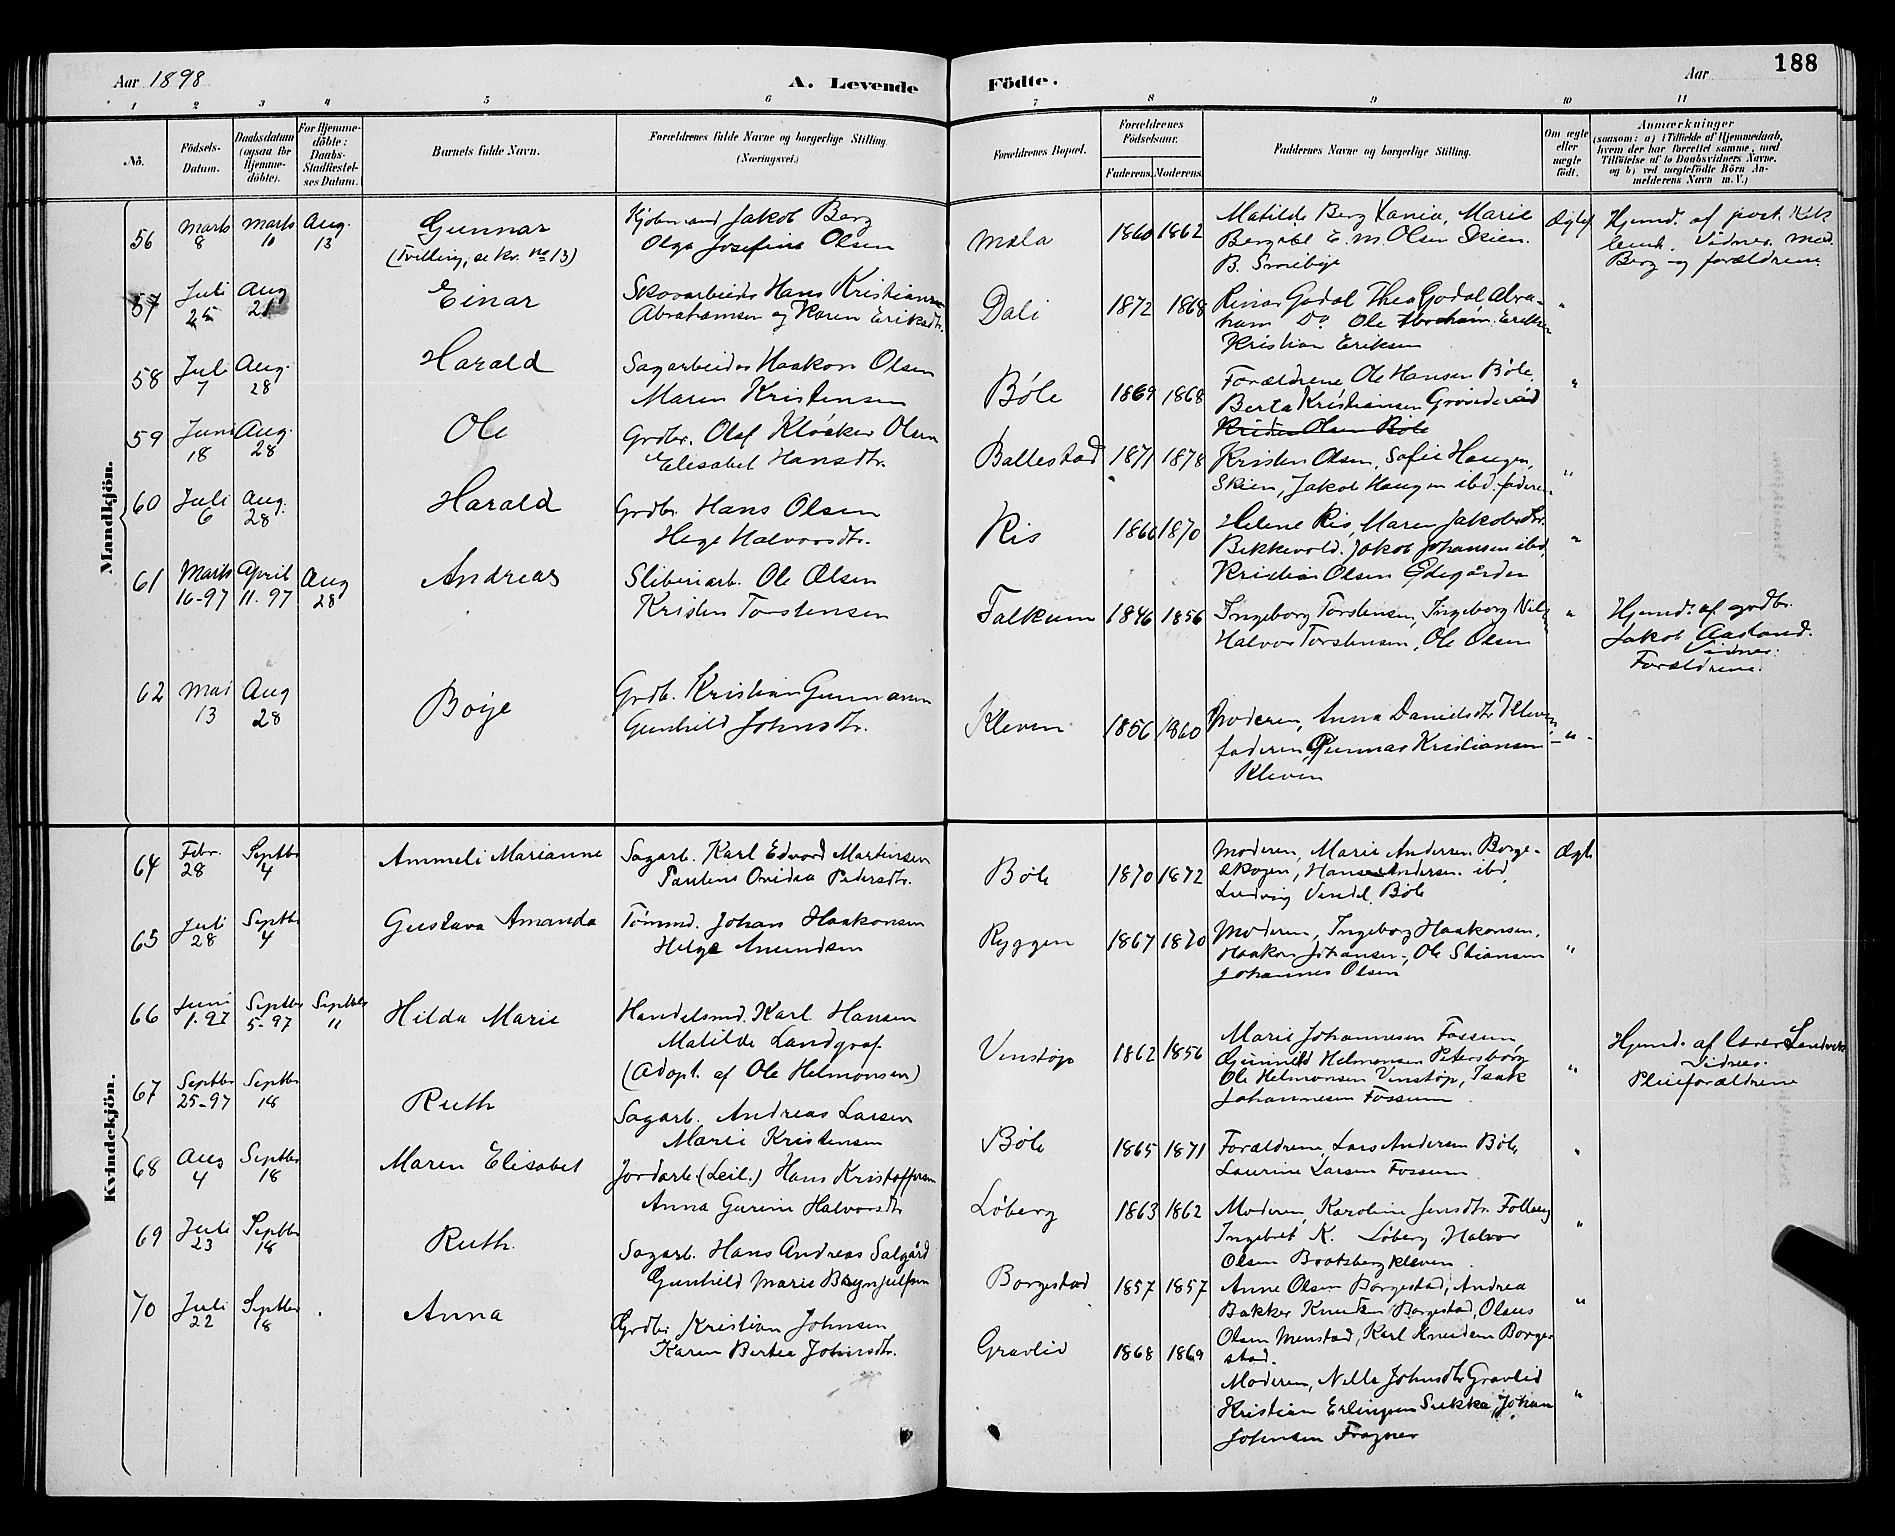 Aar 1898
A. Levende Födte.
Aar
188
1 2 3 4 5 6 7 8 9 10 11
No.
Födsels-
Datum.
Daabsdatum
(ogsaa for
Hjemme-
döbte).
For Hjemme-
döbte:
Daabs-
Stadfæstel-
ses Datum.
Barnets fulde Navn.
Forældrenes fulde Navne og borgerlige Stilling
(Næringsvei.)
Forældrenes Bopæl.
Forældrenes
Födselsaar.
Faderens. Moderens.
Faddernes Navne og borgerlige Stilling.
Om ægte
eller
uægte
födt.
Anmærkninger
(saasom: a) i Tilfælde af Hjemmedaab,
hvem der har forrettet samme, med
Tilföielse af to Daabsvidners Navne,
og b) ved uægtefödte Börn An-
melderens Navn m. V.)
Mandkjön.
56 Marts 8 Marts 10 Aug. 13
Gunnar
(Tvilling, se kv. no 13)
Kjøbmand Jakob Berg
Olga Josefine Olsen
Mæla 1860 1862
Matilde Berg Xania, Marie
E. M. Olsen Skien.
B.
Ægte
Hjemd. af
Vidner.
Berg og forældrene.
57 Juli 25 Aug 21
Einar
Skovarbeider Hans Kristiansen
Abrahamsen og Karen Eriksdtr.
Dali 1872 1868
Godal Thea Godal Abra-
ham Do Ole Abraham. Eriksen
Kristian Eriksen
"
58 Juli 7 Aug. 28
Harald
Sagarbeider Haakon Olsen
Maren Kristensen
Bøle 1869 1868
Forældrene Ole Hansen Bøle,
Berta Kristiansen
Olsen Bøle
"
59 Juni 18 Aug. 28
Ole
Grdbr. Olaf Kløcker Olsen
Elisabet Hansdtr.
Ballestad 1871 1878
Kristen Olsen, Sofie Haugen,
Skien, Jakob Haugen ibd. faderen.
"
60 Juli 6 Aug. 28
Harald
Grdbr Hans Olsen
Hege Halvorsdtr.
Ris 1866 1870
Helene Ris, Maren Jakobsdtr.
Bekkevold. Jakob Johansen ibd.
Kristian Olsen Ødegården
"
61 Marts 16-97 April 11-97 Aug 28
Andreas
Sliberiarb. Ole Olsen
Kristen Torstensen
Falkum 1846 1856
Ingeborg Torstensen, Ingeborg
Halvor Torstensen, Ole Olsen
"
Hjemd. af grdbr.
Jakob Aasland.
Vidner:
Forældrene.
62 Mai 13 Aug 28
Boye
Grdb. Kristian Gunnarsen
Gunhild Johnsdtr.
Kleven 1856 1860
Moderen, Anna Danielsdtr Kleven
faderen, Gunnar Kristiansen
Kleven
- " -
Kvindekjön.
64 Febr. 28 Septbr 4
Ammeli Marianne
Sagarb. Karl Edvard Martinsen
Pauline Ovidia Pedersdtr.
Bøle 1870 1872
Moderen, Marie Andersen. Borge-
skogen, Hans Andersen. ibd,
Ludvig Vendel, Bøle
Ægte
65 Juli 28 Septbr 4
Gustava Amanda
Tømmd. Johan Haakonsen
Helga Amundsen
Ryggen 1867 1870
Moderen, Ingeborg Haakonsen,
Haakon Johansen, Ole Stiansen
Johannes Olsen
"
66 Juni 1-97 Septbr 5-97 Septbr 11
Hilda Marie
Handelsmd. Karl Hansen
Matilde Landgraf
(Adopt. af Ole Helmonsen)
Vinstøp 1862 1856
Marie Johannesen Fossum,
Gunnild Helmonsen Petersborg
Ole Helmonsen Vinstøp, Isak
Johannesen Fossum
"
Hjemd. af lærer
Vidner.
Pleieforældrene
67 Septbr 25-97 Septbr 18
Ruth
Sagarb. Andreas Larsen
Marie Kristensen
Bøle 1865 1871
Forældrene, Lars Andersen Bøle,
Laurine Larsen Fossum
"
68 Aug 4 Septbr 18
Maren Elisabet
Jordarb. (Leil.) Hans Kristoffersen
Anna Gurine Halvorsdtr
Løberg 1863 1862
Moderen, Karoline Jensdtr
Ingebret K. Løberg, Halvor
Olsen Bratsbergkleven
"
69 Juli 23 Septbr 18
Ruth.
Sagarb. Hans Andreas Solgård
Gunhild Marie Brynjulfsen
Borgestad 1857 1857
Anne Olsen Borgestad, Andrea
Bakker Knudsen Borgestad, Olaus
Olsen Menstad, Karl Knudsen Borge-
stad.
"
70 Juli 22 Septbr 18
Anna
Grdbr. Kristian Johnsen
Karen Bertea Johnsdtr.
Gravlid 1868 1869
Moderen, Nella Johnsdtr Gravlid
Kristian Erlingsen Sukka, Johan
Johnsen Frogner
"